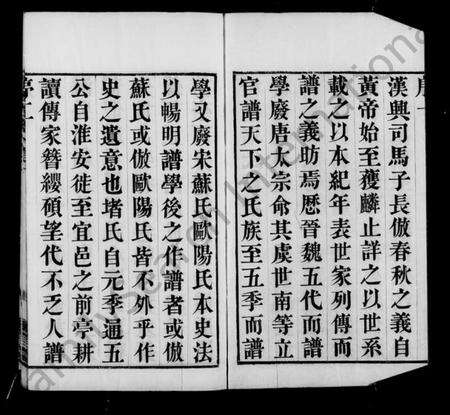 序一
漢興司馬子長倣春秋之義自
黃帝始至獲麟止詳之以世系
載之以本紀年表世家列傳而
譜之義昉焉歷晉魏五代而譜
學廢唐太宗命其虞世南等立
官譜天下之氏族至五季而譜
學又廢宋蘇氏歐陽氏本史法
以暢明譜學後之作譜者或倣
蘇氏或倣歐陽氏皆不外乎作
史之遺意也堵氏自元季通五
公自淮安徙至宜邑之前亭耕
讀傳家簪纓碩望代不乏人譜